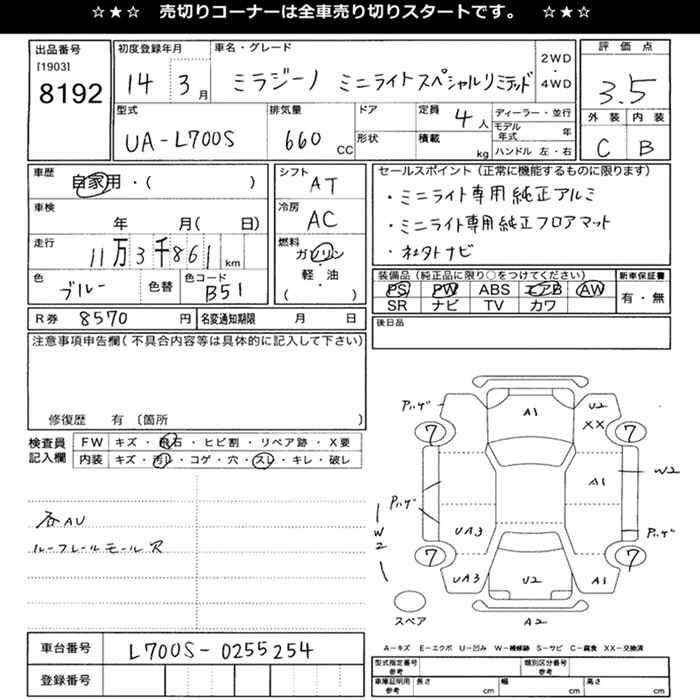 ☆★☆ 売切りコーナーは全車売り切りスタートです。 ☆★☆
出品番号 初度登録年月 車名・グレード 2WD ・ 4WD 評価点
[1903]
8192 14 3月 ミラジーノ ミニライトスペシャルリミテッド 3.5
型式 排気量 ドア 定員 4人 ディーラー・並行 外装 内装
UA-L700S 660 CC 形状 積載 kg モデル年式 年 C B
ハンドル 左・右
車歴 自家用・( ) シフト AT セールスポイント(正常に機能するものに限ります)
・ミニライト専用純正アルミ
車検 年 月( 日) 冷房 AC ・ミニライト専用純正フロアマット
走行 11万3千861km 燃料 ガソリン・軽・油 ( ) ・社外ナビ
色 ブルー 色替 色コード B51 装備品(純正品に限り○をつけてください) 新車保証書
PS PW ABS エアB AW 有・無
SR ナビ TV カワ
R券 8570円 名変通知期限 月 日 後日品
注意事項申告欄(不具合内容等は具体的に記入して下さい)
修復歴 有 〔箇所 〕
検査員記入欄 FW キズ・飛石・ヒビ割・リペア跡・X要
内装 キズ・汚レ・コゲ・穴・スレ・キレ・破レ
Pハゲ A1 U2
XX
7 7
W2
A1
Pハゲ Pハゲ
W2 UA3
7 7
UA3 U2 A1
スペア A2
AU
ルーフレールモール
車台番号 L700S-0255254
A-キズ E-エクボ U-凹み W-補修跡 S-サビ C-腐食 XX-交換済
型式指定番号 参考 類別区分番号 参考
登録番号 車庫証明用 参考 長さ cm 幅 cm 高さ cm